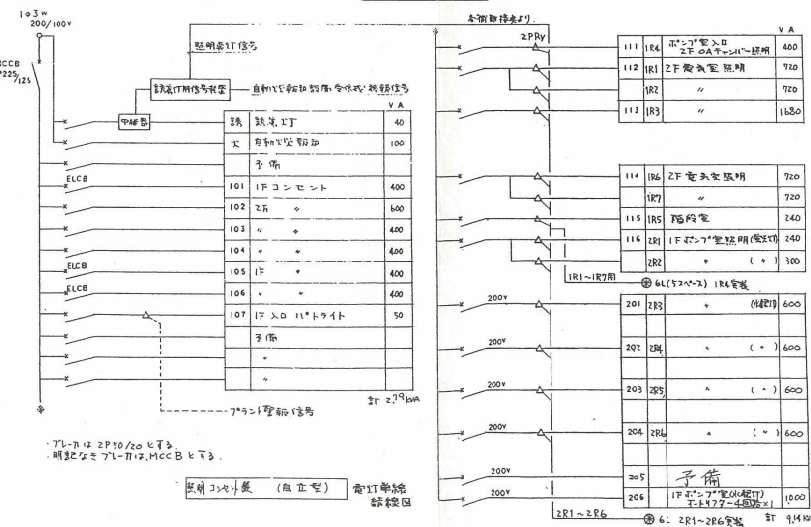 1φ3W
200/100V
MCCB
225/125
照明点灯信号
誘導灯用信号装置
自動火災報知設備受信機 移報信号
中継器
VA
誘 誘導灯 40
火 自動火災報知 100
予備
ELCB
101 1Fコンセント 400
102 2F 〃 600
103 〃 〃 400
104 〃 〃 400
ELCB
105 1F 〃 400
ELCB
106 〃 〃 400
107 1F入口パトライト 50
予備
〃
〃
計 2.79kVA
プラント警報信号
・ブレーカは2P50/20とする.
・明記なきブレーカは,MCCBとする.
照明コンセント盤 (自立型)
電灯単線
結線図
2PRy
VA
111 1R4 ポンプ室入口
2F OAチャンバー照明 400
112 1R1 2F電気室照明 720
1R2 〃 720
113 1R3 〃 1680
114 1R6 2F電気室照明 720
1R7 〃 720
115 1R5 階段室 240
116 2R1 1Fポンプ室照明(蛍光灯) 240
2R2 〃 ( 〃 ) 300
1R1~1R7用
6L(5スペース) 1R4実装
200V
201 2R3 〃 (水銀灯) 600
200V
202 2R4 〃 ( 〃 ) 600
200V
203 2R5 〃 ( 〃 ) 600
200V
204 2R6 〃 ( 〃 ) 600
200V
205 予備
200V
206 1Fポンプ室(水銀灯)
オートリフター4回路×1 1000
2R1~2R6
6L 2R1~2R6実装
計 9.14